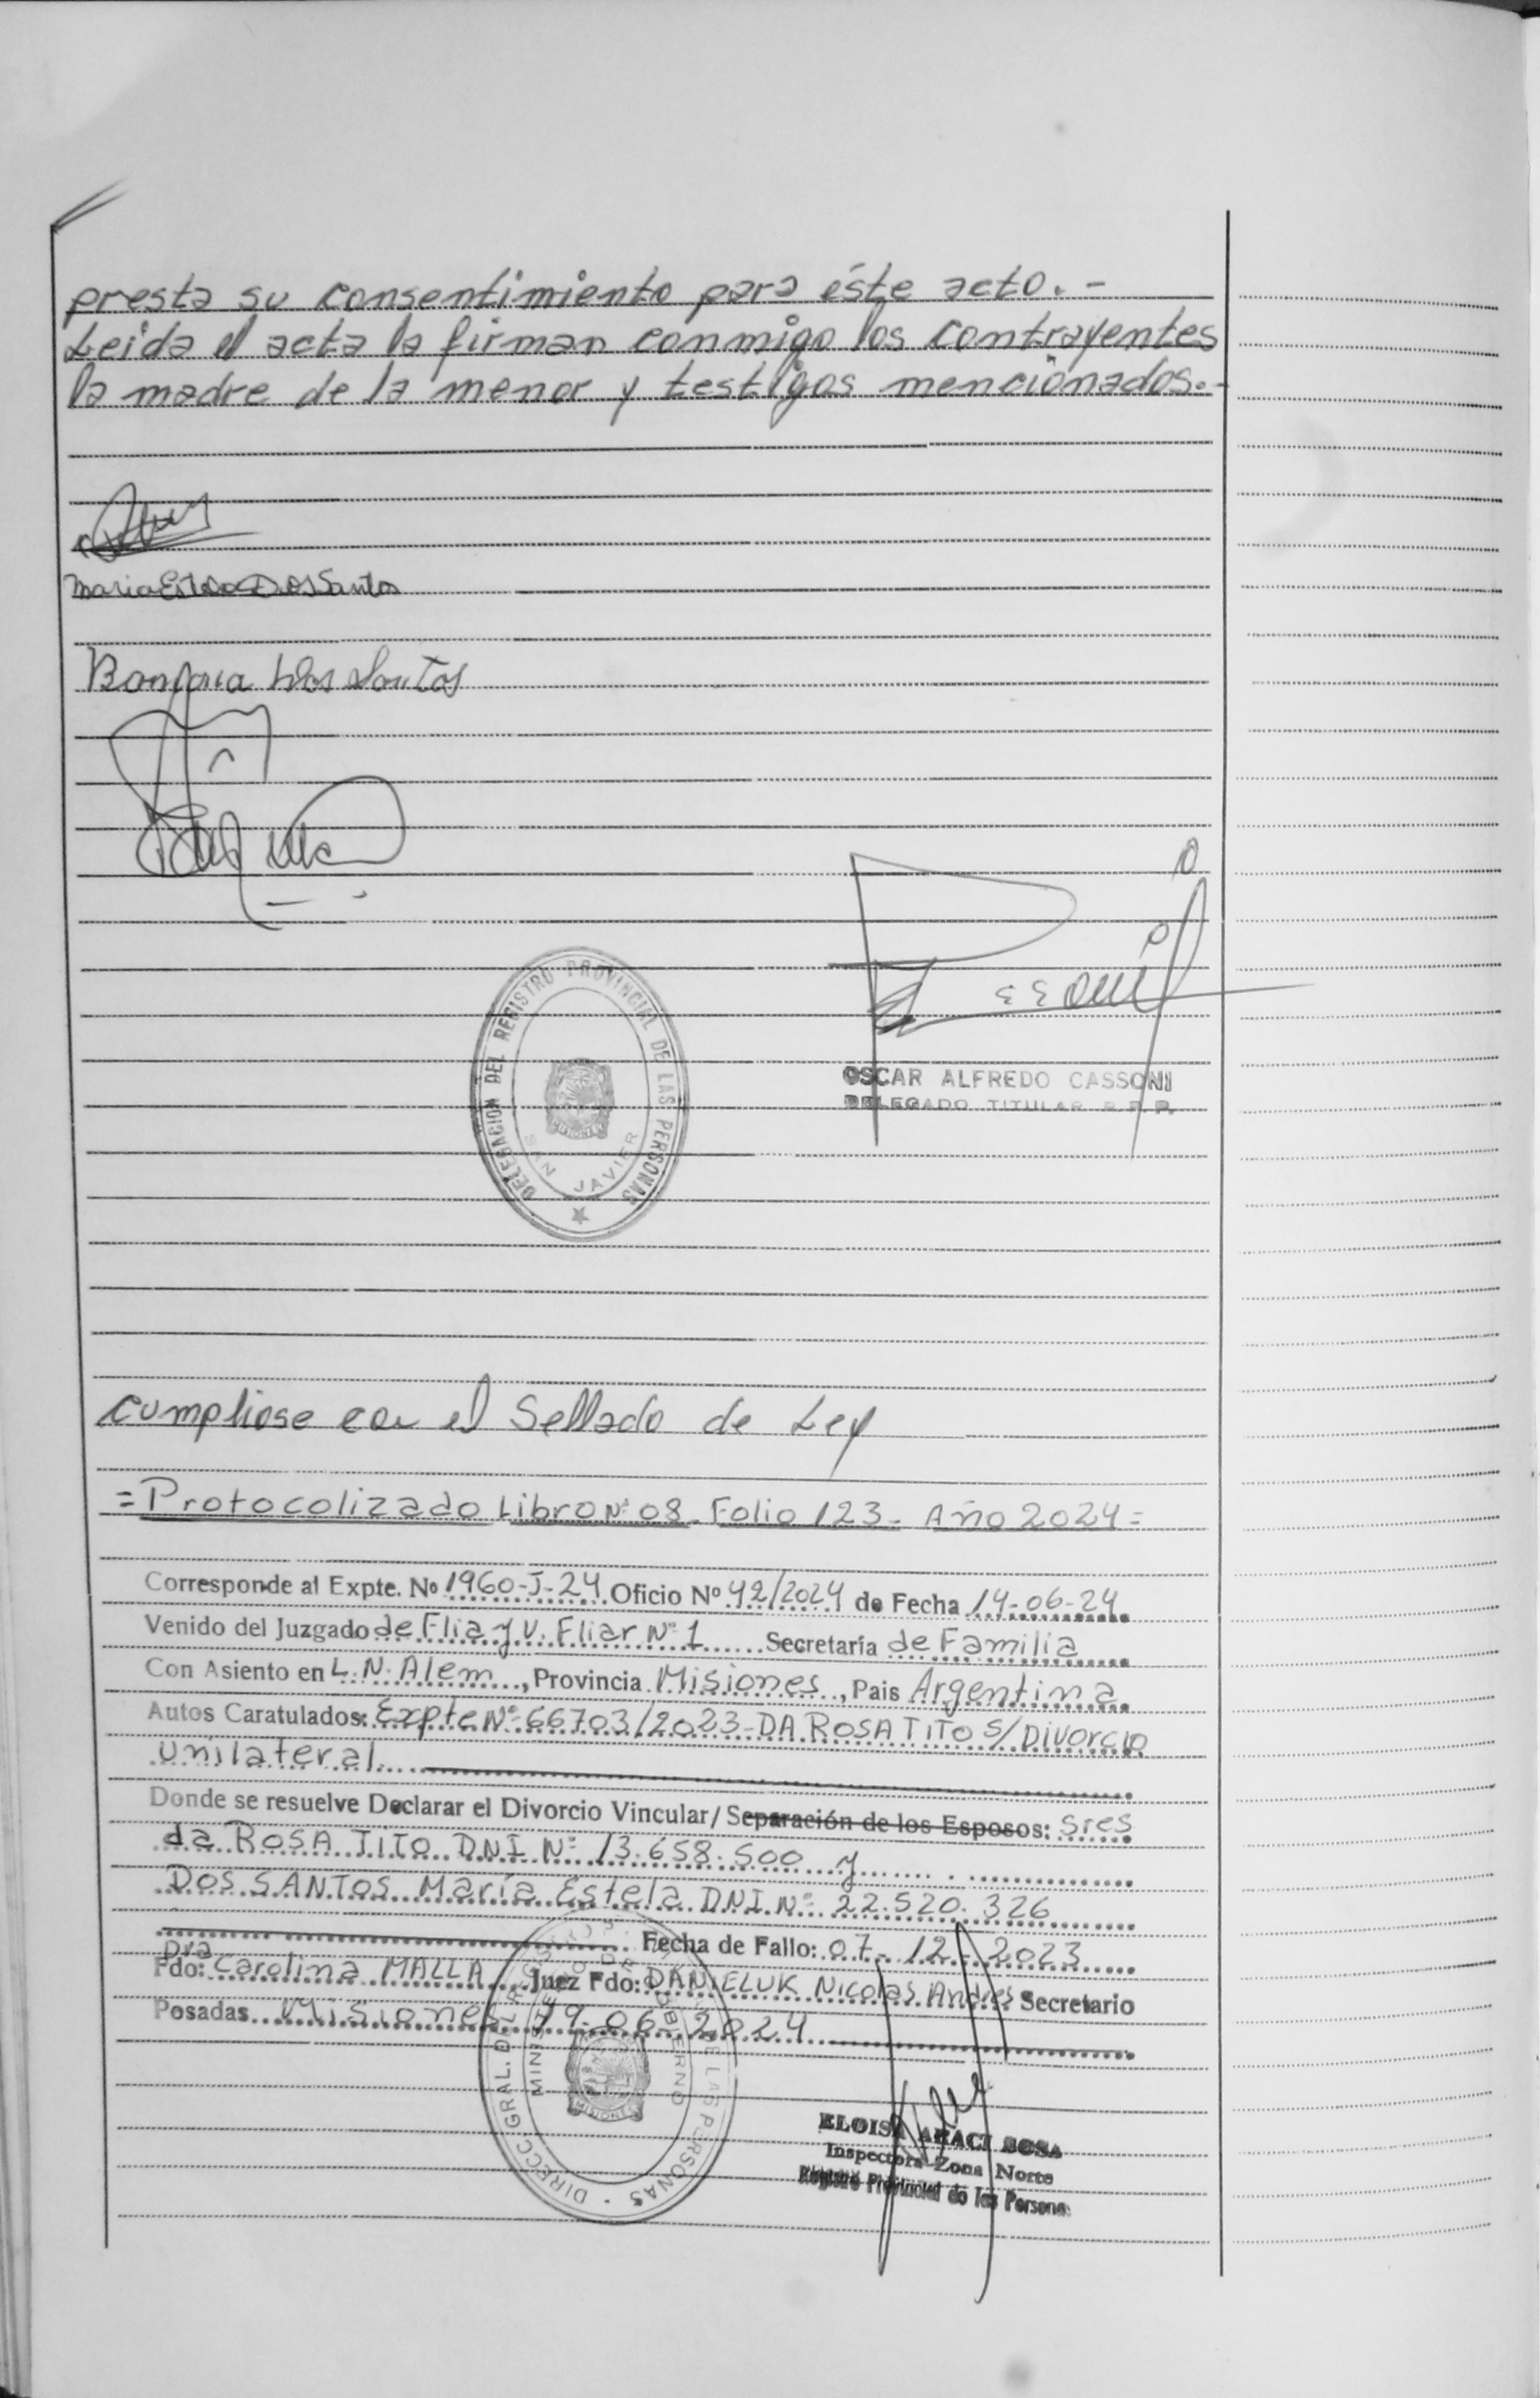 presta su consentimiento para éste acto.-
Leida el acta la firman conmigo los contrayentes
la madre de la menor y testigos mencionados.-
Maria Estela Dos Santos
Dos Santos
DELEGACION DEL REGISTRO PROVINCIAL DE LAS PERSONAS
SAN JAVIER
MISIONES
OSCAR ALFREDO CASSONI
DELEGADO TITULAR R.P.P.
Cumpliose con el Sellado de Ley
=Protocolizado Libro Nº 08- Folio 123- Año 2024=
Corresponde al Expte. Nº 1960-J-24 Oficio Nº 42/2024 de Fecha 14-06-24
Venido del Juzgado de Flia y V. Fliar Nº 1 Secretaría de Familia
Con Asiento en L. N. Alem, Provincia Misiones, Pais Argentina
Autos Caratulados: Expte Nº 66703/2023- DA ROSA TITO S/ Divorcio
Unilateral
Donde se resuelve Declarar el Divorcio Vincular/ Separación de los Esposos: Sres
da ROSA TITO DNI Nº 13.658.500 y
DOS SANTOS María Estela DNI Nº 22.520.326
Fecha de Fallo: 07-12-2023
Dra
Fdo: Carolina MALLA Juez Fdo: DANIELUK Nicolás Andres Secretario
Posadas Misiones 19-06-2024
DIRECC. GRAL. DEL REGISTRO DE LAS PERSONAS
MINISTERIO DE GOBIERNO
MISIONES
ELOISA ARACI SOSA
Inspectora Zona Norte
Registro Provincial de las Persona